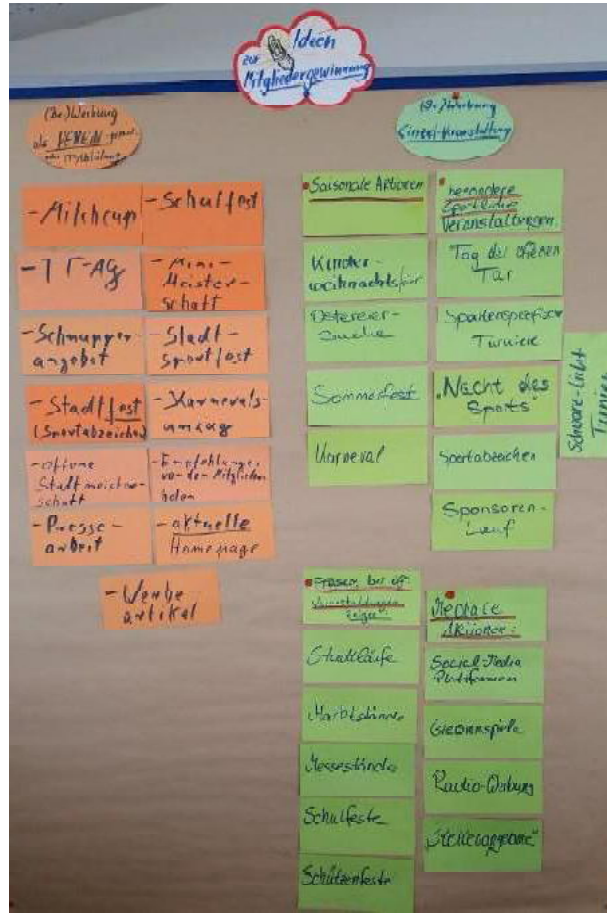 Ideen
zur
Mitgliedergewinnung
(Be-)Werbung
als VEREIN
- Milchcup
- Schulfest
- TT-AG
- Mini-
Meister-
schaft
- Schnupper-
angebot
- Stadt-
sportfest
- Stadtfest
(Sportabzeichen)
- Karnevals-
umzug
- offene
Stadtmeister-
schaft
- Empfehlungen
von den Mitgliedern
holen
- Presse-
arbeit
- aktuelle
Homepage
- Werbe
artikel
(Be-)Werbung
Einzel-Veranstaltung
Saisonale Aktionen
Kinder-
weihnachtsfeier
Ostereier-
Suche
Sommerfest
Karneval
besondere
Sportliche
Veranstaltungen
"Tag der offenen
Tür
Spartenspezifische
Turniere
"Nacht des
Sports"
Sportabzeichen
Sponsoren-
Lauf
Schwarz-Licht
Turnier
Präsenz bei öff.
Veranstaltungen
zeigen
Stadtläufe
Marktstände
Messestände
Schulfeste
Schützenfeste
Mediale
Aktionen:
Social-Media
Plattformen
Gewinnspiele
Radio-Werbung